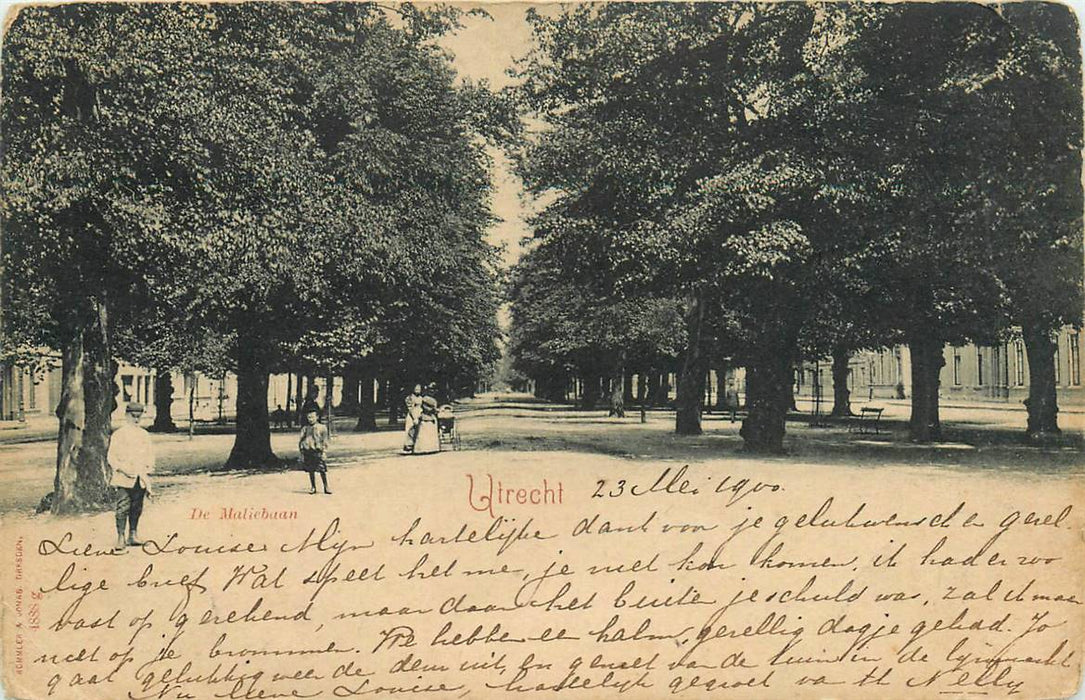 Utrecht 23 Mei 1900.
De Maliebaan
Lieve Louise Mijn hartelijke dank voor je gelukwensch en gezel-
lige brief. Wat speet het me, je niet kon komen, ik had er zoo
vast op gerekend, maar daar het buiten je schuld was, zal ik maar
niet op je brommen. We hebben een kalm, gezellig dagje gehad. Jo
gaat gelukkig weer de deur uit, en geniet van de tuin in de
Nu lieve Louise, hartelijk gegroet van tt Nelly
RÖMMLER & JONAS, DRESDEN.
1888 g.